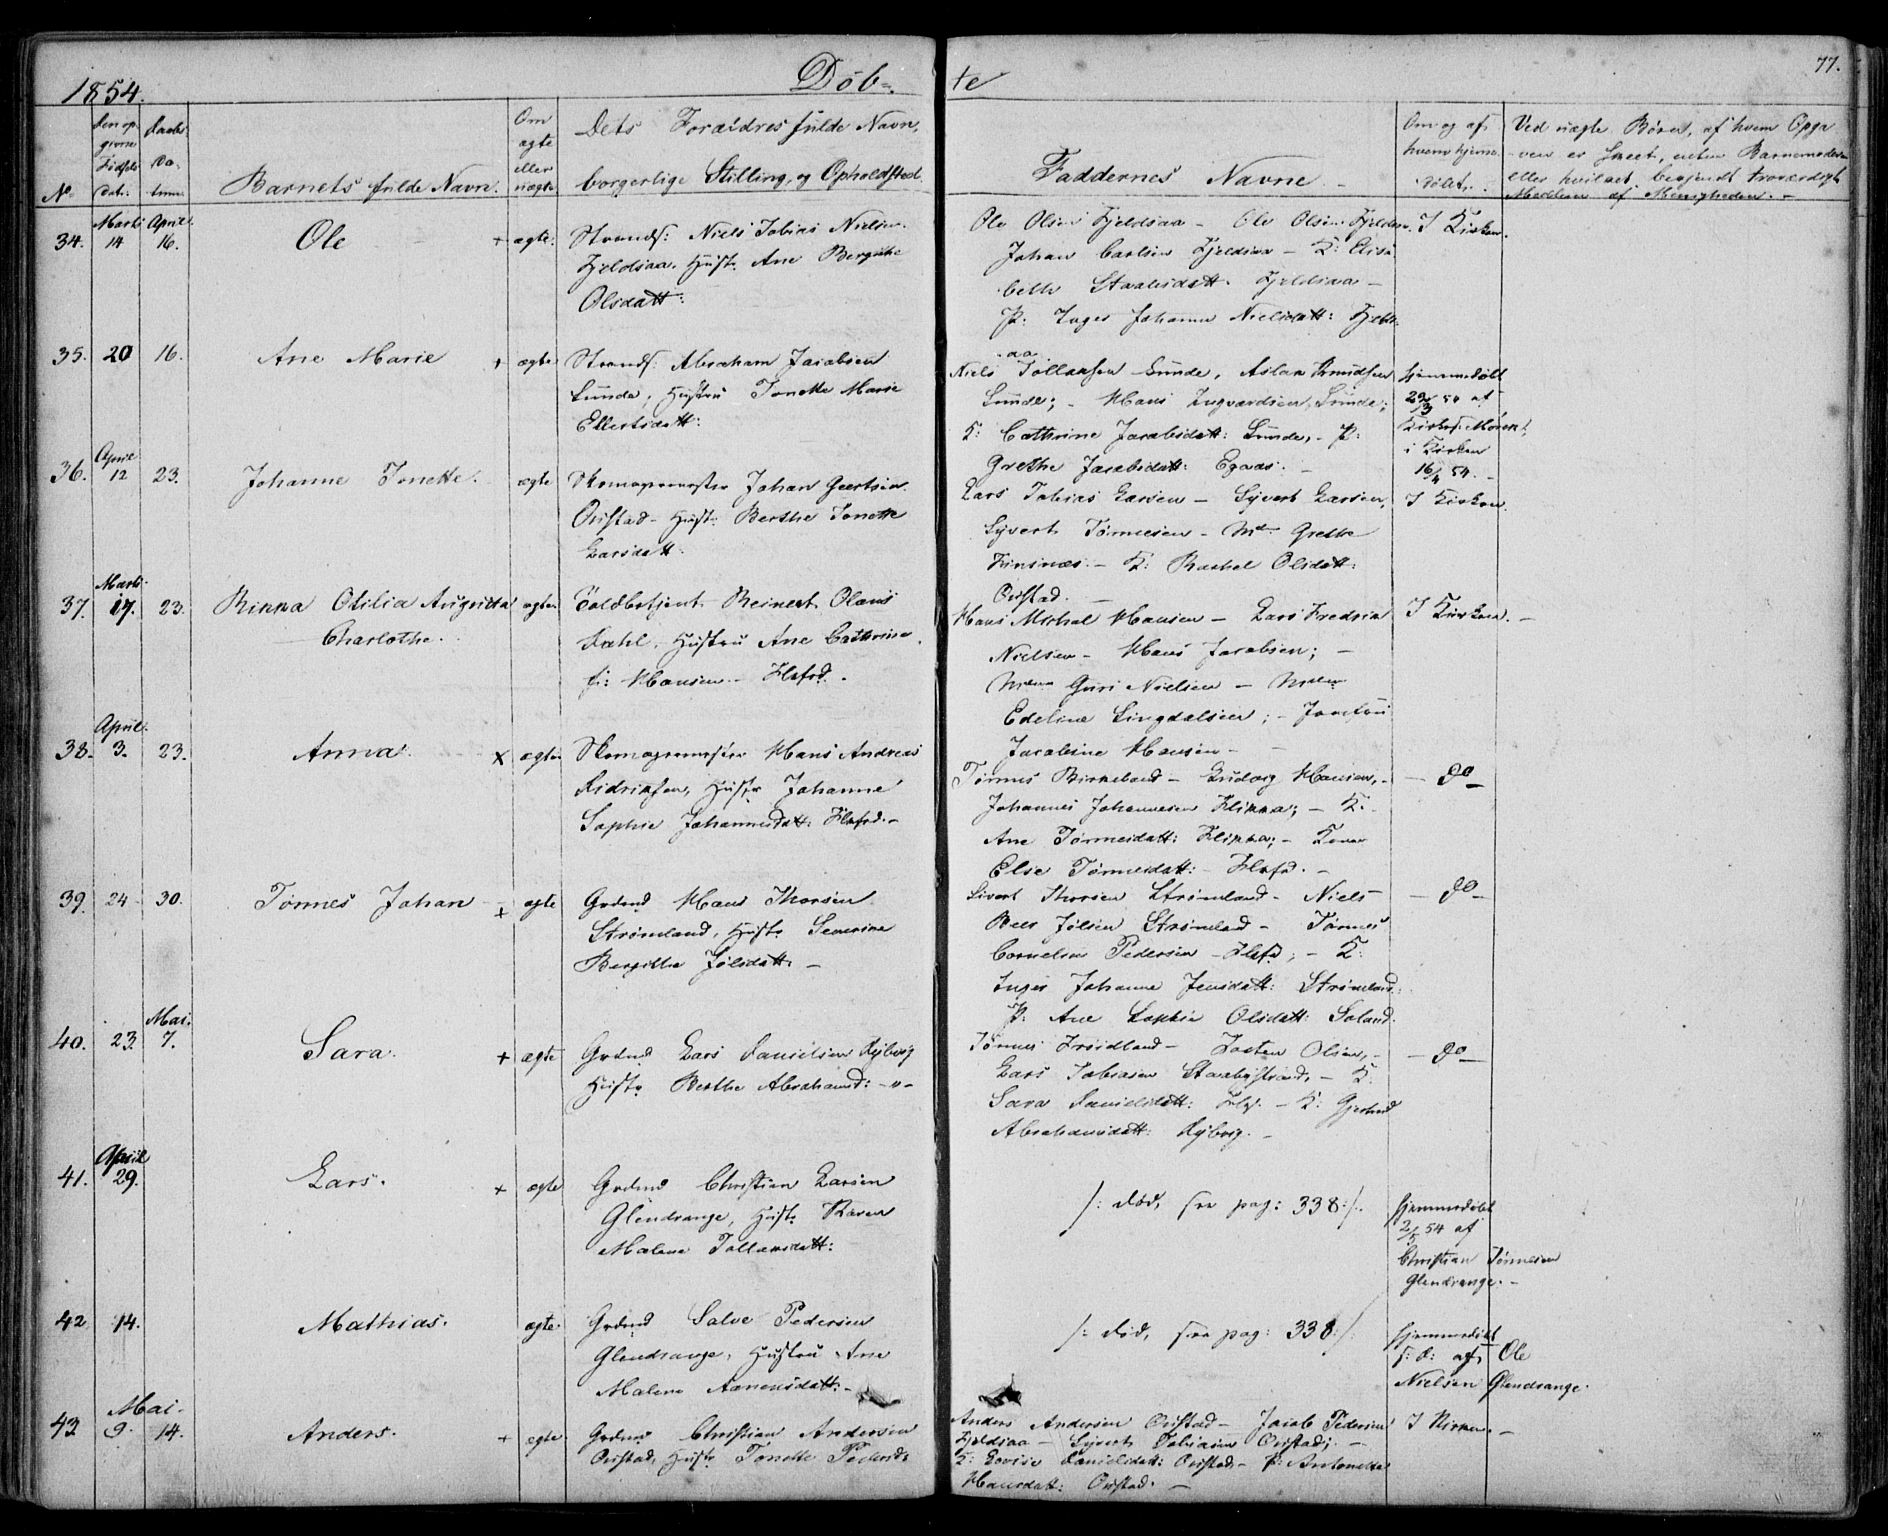 1854.
Döb-
te
77.
No
Den op-
givne
Födsels
Dat:
Daabs
Da-
tum.
Barnets fulde Navn.
Om
ægte
eller
uægte
Dets Forældres fulde Navn,
borgerlige Stilling, og Opholdsted
Faddernes Navne
Om og af
hvem hjemme
døbt.
Ved uægte Börn, af hvem Opga
-ven er skeet, enten Barnemoderen
eller hvilket bekjendt troværdigt
Medlem af Menigheden. -
34.
Marti
14
April
16.
Ole
+ ægte:
Strands: Niels Tobias Nielsen
Fjeldsaa. Hustr Ane Bergithe
Olsdatt:
Ole Olsen Fjeldsaa - Ole Olsen Fjeldsaa
Johan Carlsen Fjeldsaa - K: Elisa
beth Staalesdatt. Fjeldsaa -
P: Inger Johanne Nielsdatt: Fjelds-
aa
I Kirken.
35.
20
16.
Ane Marie
+ ægte
Strands: Abraham Jacobsen
Lunde, Hustru Tonette Marie
Ellertsdatt:
Niels Tollaksen Lunde, Aslak Knudsen
Lunde; - Hans Ingvardsen Lunde;
K: Cathrine Jacobsdatt: Lunde, - P:
Grethe Jacobsdatt: Egaas. -
hjemmedøbt
29/3 54 af
i Kirken
16/4 54. -
36.
April
12
23.
Johanne Tonette.
ægte
Skomagermester Johan Geertsen
Ovstad - Hust: Berthe Tonette
Larsdatt:
Lars Tobias Larsen - Sivert Larsen,
Sivert Tønnesen - Md Grethe
- K: Rachel Olsdatt:
Ovstad. -
I Kirken.
37.
Marti
17.
23.
Rikka Otilia Augusta
Charlothe.
ægte
Toldbetjent Reinert Olaus
Dahl, Hustru Ane Cathrine
f: Hansen - Flefd.
Hans Michal Hansen - Lars Fredrik
Nielsen - Hans Jacobsen; -
Mdme Guri Nielsen - Mdme
Edeline Lingdalsen; - Jomfru
Jacobine Hansen -
I Kirken. -
38.
April.
3.
23.
Anna.
x ægte
Skomagermester Hans Andreas
Didriksen, Hustr Johanne
Sophie Johannesdatt: Flefd. -
Tönnes Birkeland - Ludvig Hansen, -
Johannes Johannesen Flikka; - K.
Ane Tønnesdatt: Flikka; - Kone
Else Tønnesdatt: - Flefd. -
- do -
39.
24
30.
Tønnes Johan
+ ægte
Grdmd Hans Thorsen
Strømland, Hustr Severine
Bergitha Joelsdatt: -
Sivert Thorsen Strømland - Niels
Beer Joelsen Strømland - Tønnes
Cornelius Pedersen - Flefd; - K:
Inger Johanne Jensdatt: Strømland
P: Ane Sophie Olsdatt: Soland.
- do -
40.
23.
Mai.
7.
Sara.
+ ægte
Grdmd Lars Danielsen Rybvig
Hustr Berthe Abrahamd: -"-
Tønnes Frøidland - Josten Olsen, -
Lars Tobiasen - K:
Sara Danielsdatt: - K: Gjertrud
Abrahamsdatt: Rybvig. -
- do -
41.
April
29.
Lars.
+ ægte
Grdmd Christian Larsen
Glendrange, Hustr Karen
Malene Tollaksdatt:
/: død, see pag: 338:/.
hjemmedøbt
2/5 54 af
Christian Tønnesen
Glendrange. -
42
14.
Mathias.
ægte.
Grdmd Salve Pedersen
Glendrange, Hustru Ane
Malene Aanensdatt: -
/: død, see pag: 338:/.
hjemmedøbt
s: d: af Ole
Nielsen Glendrange.
43
Mai.
9.
14.
Anders.
+ ægte
Grdmd Christian Andersen
Ovstad, Hustr Tonette Pedersd:
Anders Andersen Ovstad - Jacob Pedersen
Fjeldsaa - Syvert Tobiasen Ovstad; -
K: Lovise Danielsdatt: Ovstad, - P: Antonette
Hansdatt: Ovstad. -
I Kirken. -